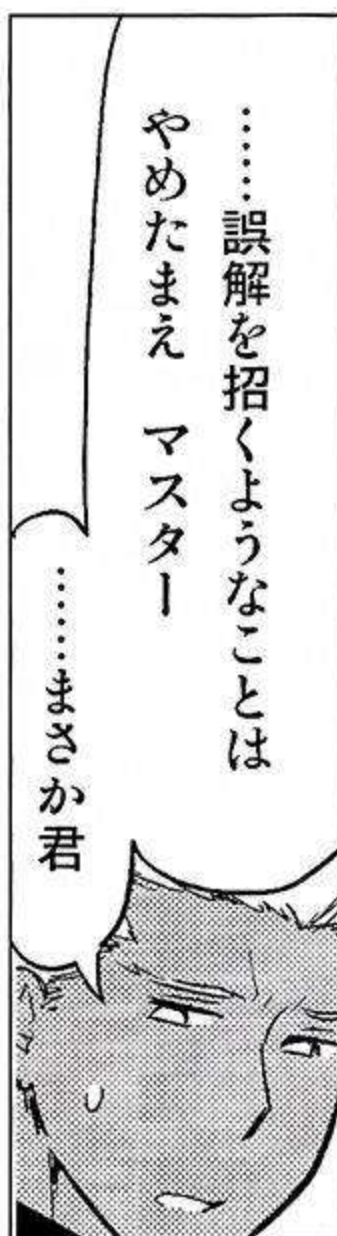 ……誤解を招くようなことは
やめたまえ　マスター
………まさか君